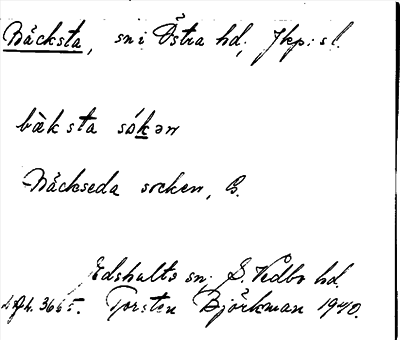 Näcksta, sn i Östra hd, Jkp:s l.
bäk sta sókən
Näckseda socken, B.
Edshults sn, S. Vedbo hd.
Torsten Björkman 1940.